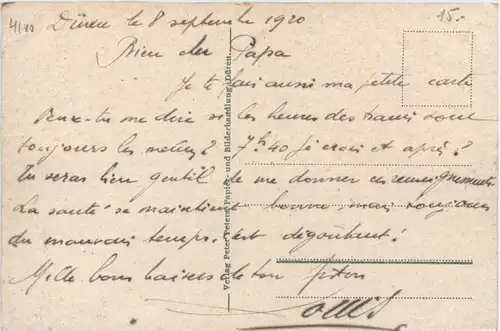 4/00
15.-
Düren le 8 septembre 1920
Bien cher Papa
Je te fais aussi ma petite carte
Peux-tu me dire si les heures des trains sont
toujours les mêmes? 7h40 je crois et après?
tu seras bien gentil de me donner ces renseignements
La santé se maintient bonne, mais toujours
du mauvais temps. c'est dégoûtant!
Mille bons baisers de ton fiston
Louis
Verlag Peter Peters, Papier- und Bilderhandlung, Düren.